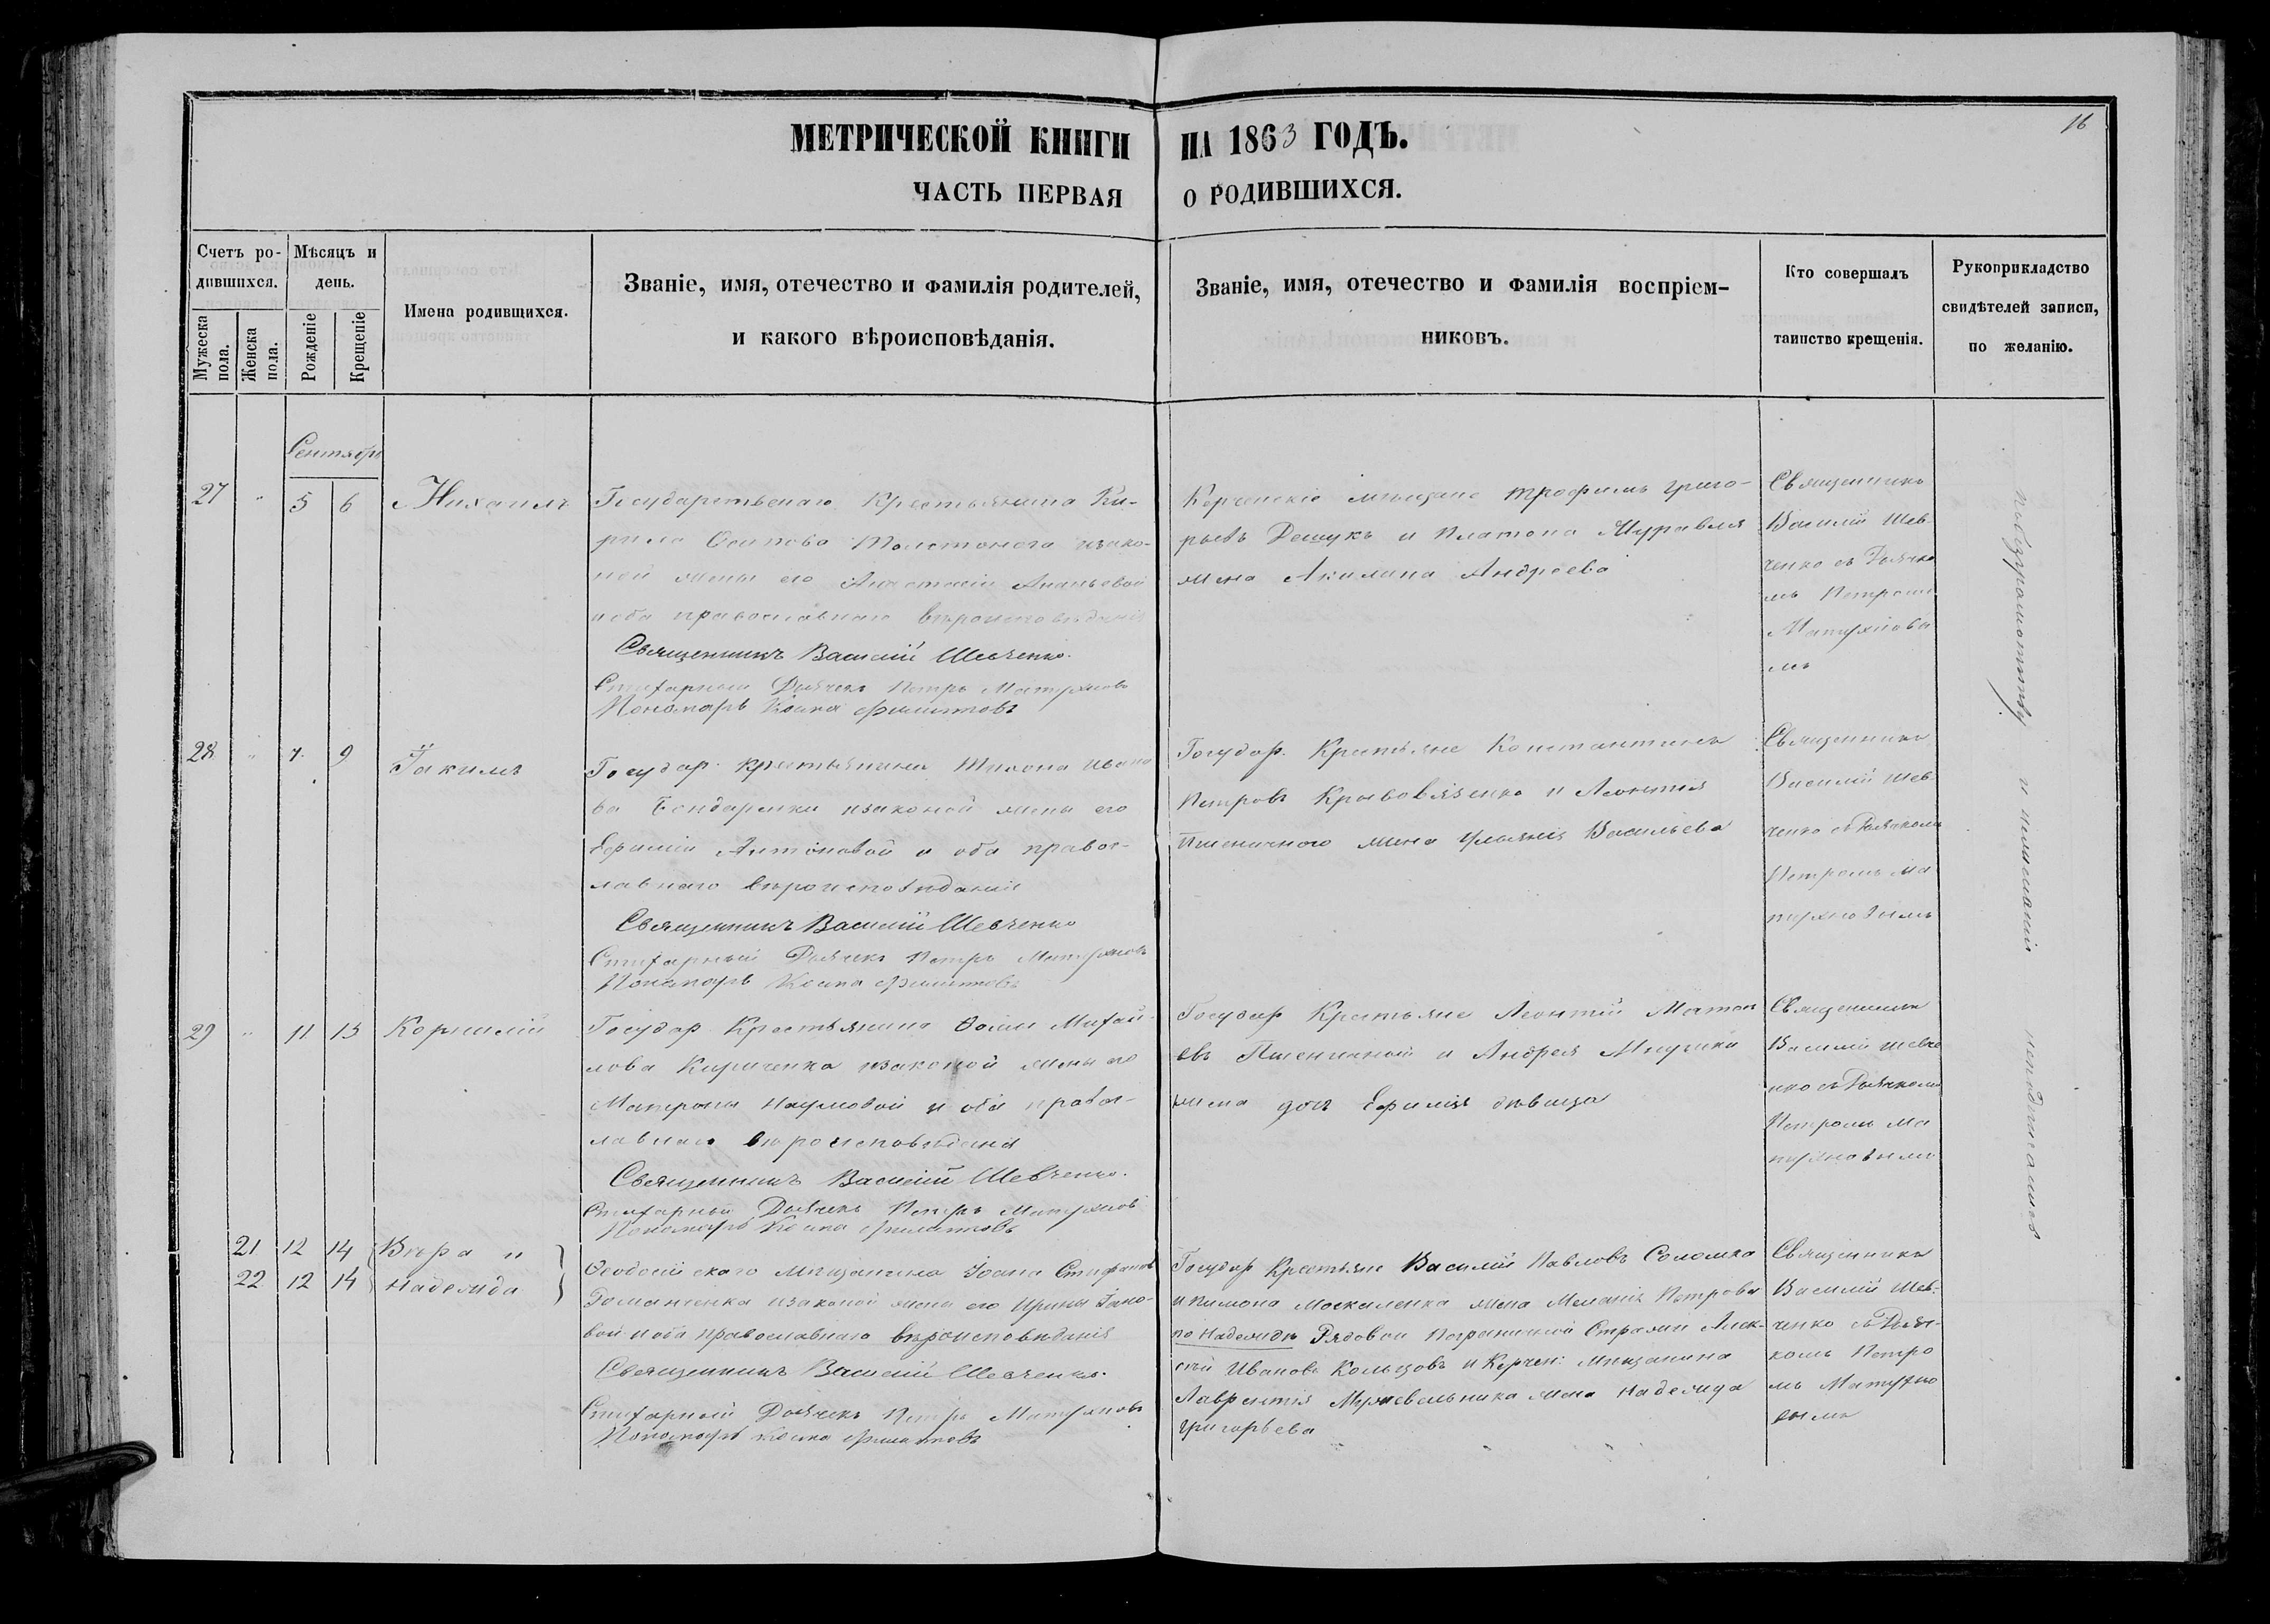 МЕТРИЧЕСКОЙ КНИГИ НА 1863 ГОДЪ.
16
ЧАСТЬ ПЕРВАЯ О РОДИВШИХСЯ.
Счетъ ро-
дившихся.
Мужеска пола.
Женска пола.
Мѣсяцъ и
день.
Рожденіе
Крещеніе
Имена родившихся.
Званіе, имя, отечество и фамилія родителей,
и какого вѣроисповѣданія.
Званіе, имя, отечество и фамилія воспріем-
никовъ.
Кто совершалъ
таинство крещенія.
Рукоприкладство
свидѣтелей записи,
по желанію.
Сентябрь
27 " 5 6 Михаилъ
Государственаго Крестьянина Ки-
рила Осипова изако-
ной жены его Анастасіи Ананьевой
и оба православнаго вѣроисповѣданія
Священникъ Василій Шевченко.
Стихарный Дьячекъ Петръ Матухновъ
Пономарь Косма Филиповъ
Керченскіе мѣщане Трофимъ Григо-
рьевъ Дещукъ и Платона Журавля
жена Акилина Андреева
Священникъ
Василій Шев
ченко съ Дьячко
мъ Петромъ
Матухновы
мъ
28 " 7 9 Іакимъ
Государ. Крестьянина Тихона Ивано
ва Бондаренка изаконой жены его
Евфиміи Антоновой и оба правос-
лавнаго вѣроисповѣданія
Священникъ Василій Шевченко
Стихарный Дьячекъ Петръ Матухновъ
Пономарь Косма Филиповъ
Государ. Крестьяне Константинъ
Петровъ Крывовязенко и Леонтія
Пшеничного жена Ульянія Васильева
Священникъ
Василій Шев
ченко съ Дьячкомъ
Петромъ Ма
тухновымъ
29 " 11 13 Корнилій
Государ Крестьянина Ѳомы Михай-
лова Кириченка изаконой жены его
Матроны Наумовой и оба правос-
лавнаго вѣроисповѣданія
Священникъ Василій Шевченко.
Стихарный Дьячекъ Петръ Матухновъ
Пономарь Косма Филиповъ
Государ Крестьяне Леонтій
евъ Пшеничный и Андрея
дочь Ефимія дѣвица
Священникъ
Василій Шевче
нко съ Дьячкомъ
Петромъ Ма
тухновымъ
21 12 14 Вѣра и
22 12 14 Надежда
Ѳеодосійскаго мѣщанина Іоана Стефанов
Романченка изаконой жены его Ирины
вой и оба православнаго вѣроисповѣданія
Священникъ Василій Шевченко.
Стихарный Дьячекъ Петръ Матухновъ
Пономарь Косма Филиповъ
Государ Крестьяне Василій Павловъ Соломка
и Пимона Москаленка жена Меланія Петрова
по Надеждѣ Рядовой Пограничной Стражи Алек-
сѣй Ивановъ Кольцовъ и Керчен: мѣщанина
Лаврентія жена Надежда
Григорьева
Священникъ
Василій Шев-
ченко съ Дьяч-
комъ Петро
мъ Матухно
вымъ